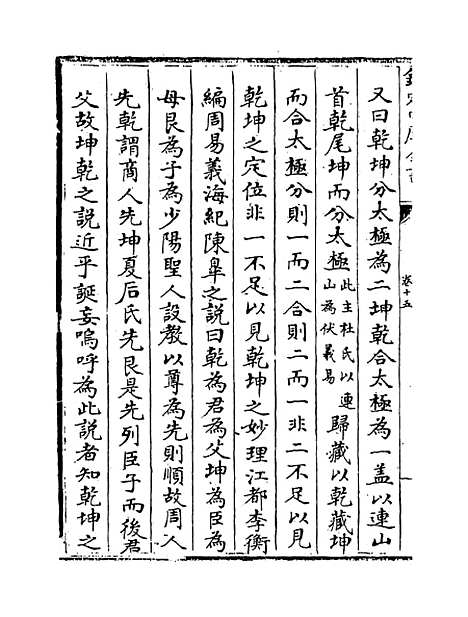 欽定四庫全書
卷十五
又曰乾坤分太極為二坤乾合太極為一蓋以連山
首乾尾坤而分太極此主杜氏以連山為伏羲易歸藏以乾藏坤
而合太極分則一而二合則二而一非二不足以見
乾坤之定位非一不足以見乾坤之妙理江都李衡
編周易義海紀陳皐之說曰乾為君為父坤為臣為
母艮為子為少陽聖人設教以尊為先則順故周人
先乾謂商人先坤夏后氏先艮是先列臣子而後君
父故坤乾之説近乎誕妄嗚呼為此説者知乾坤之